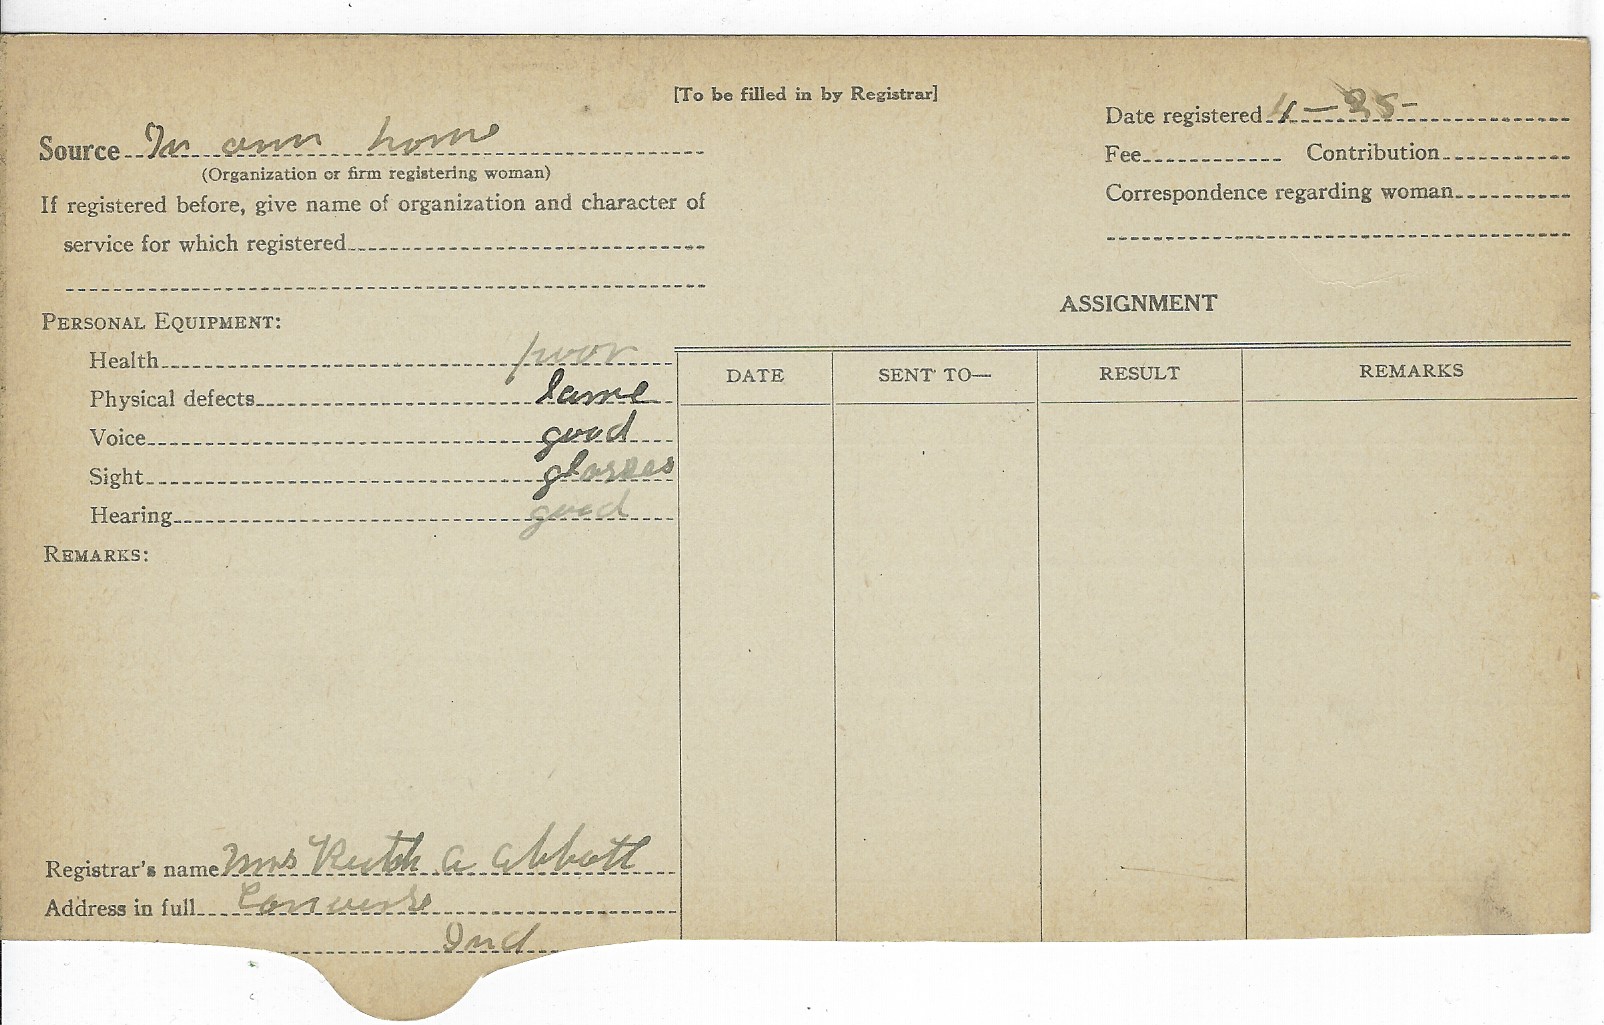 [To be filled in by Registrar]
Date registered 4 - 25 -
Source In own home
(Organization or firm registering woman)
Fee Contribution
If registered before, give name of organization and character of
service for which registered
Correspondence regarding woman
ASSIGNMENT
PERSONAL EQUIPMENT:
Health poor
Physical defects lame
Voice good
Sight glasses
Hearing good
REMARKS:
DATE SENT TO— RESULT REMARKS
Registrar's name Mrs Ruth A Abbott
Address in full Converse
Ind